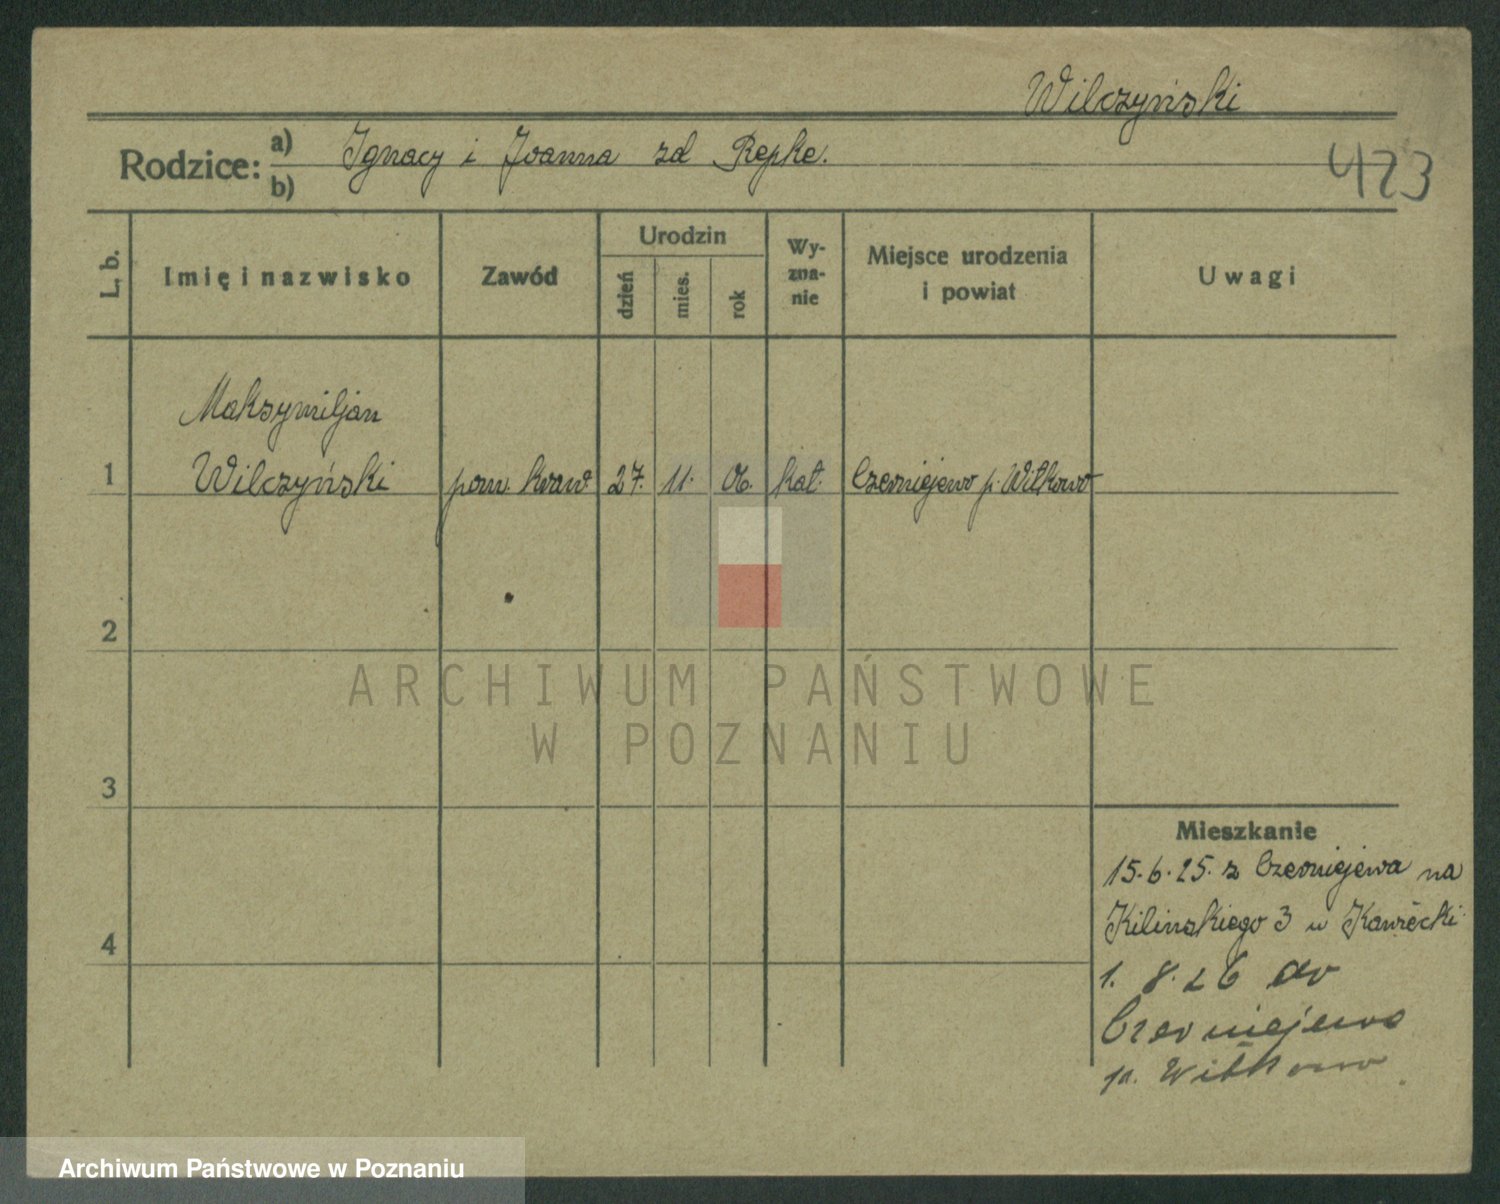 Wilczyński
Rodzice:
a) Ignacy i Joanna zd Repke.
b)
423
L. b.
Imię i nazwisko
Zawód
Urodzin
dzień
mies.
rok
Wy-
zna-
nie
Miejsce urodzenia
i powiat
Uwagi
Maksymiljan
1 Wilczyński pom. kraw. 27. 11. 06. kat. Czerniejewo p. Witkowo
2
3
4
Mieszkanie
15.6.25. z Czerniejewa na
Kilinskiego 3 u Kawrecki
1. 8. 26 do
Czerniejewo
p. Witkowo
ARCHIWUM PAŃSTWOWE
W POZNANIU
Archiwum Państwowe w Poznaniu